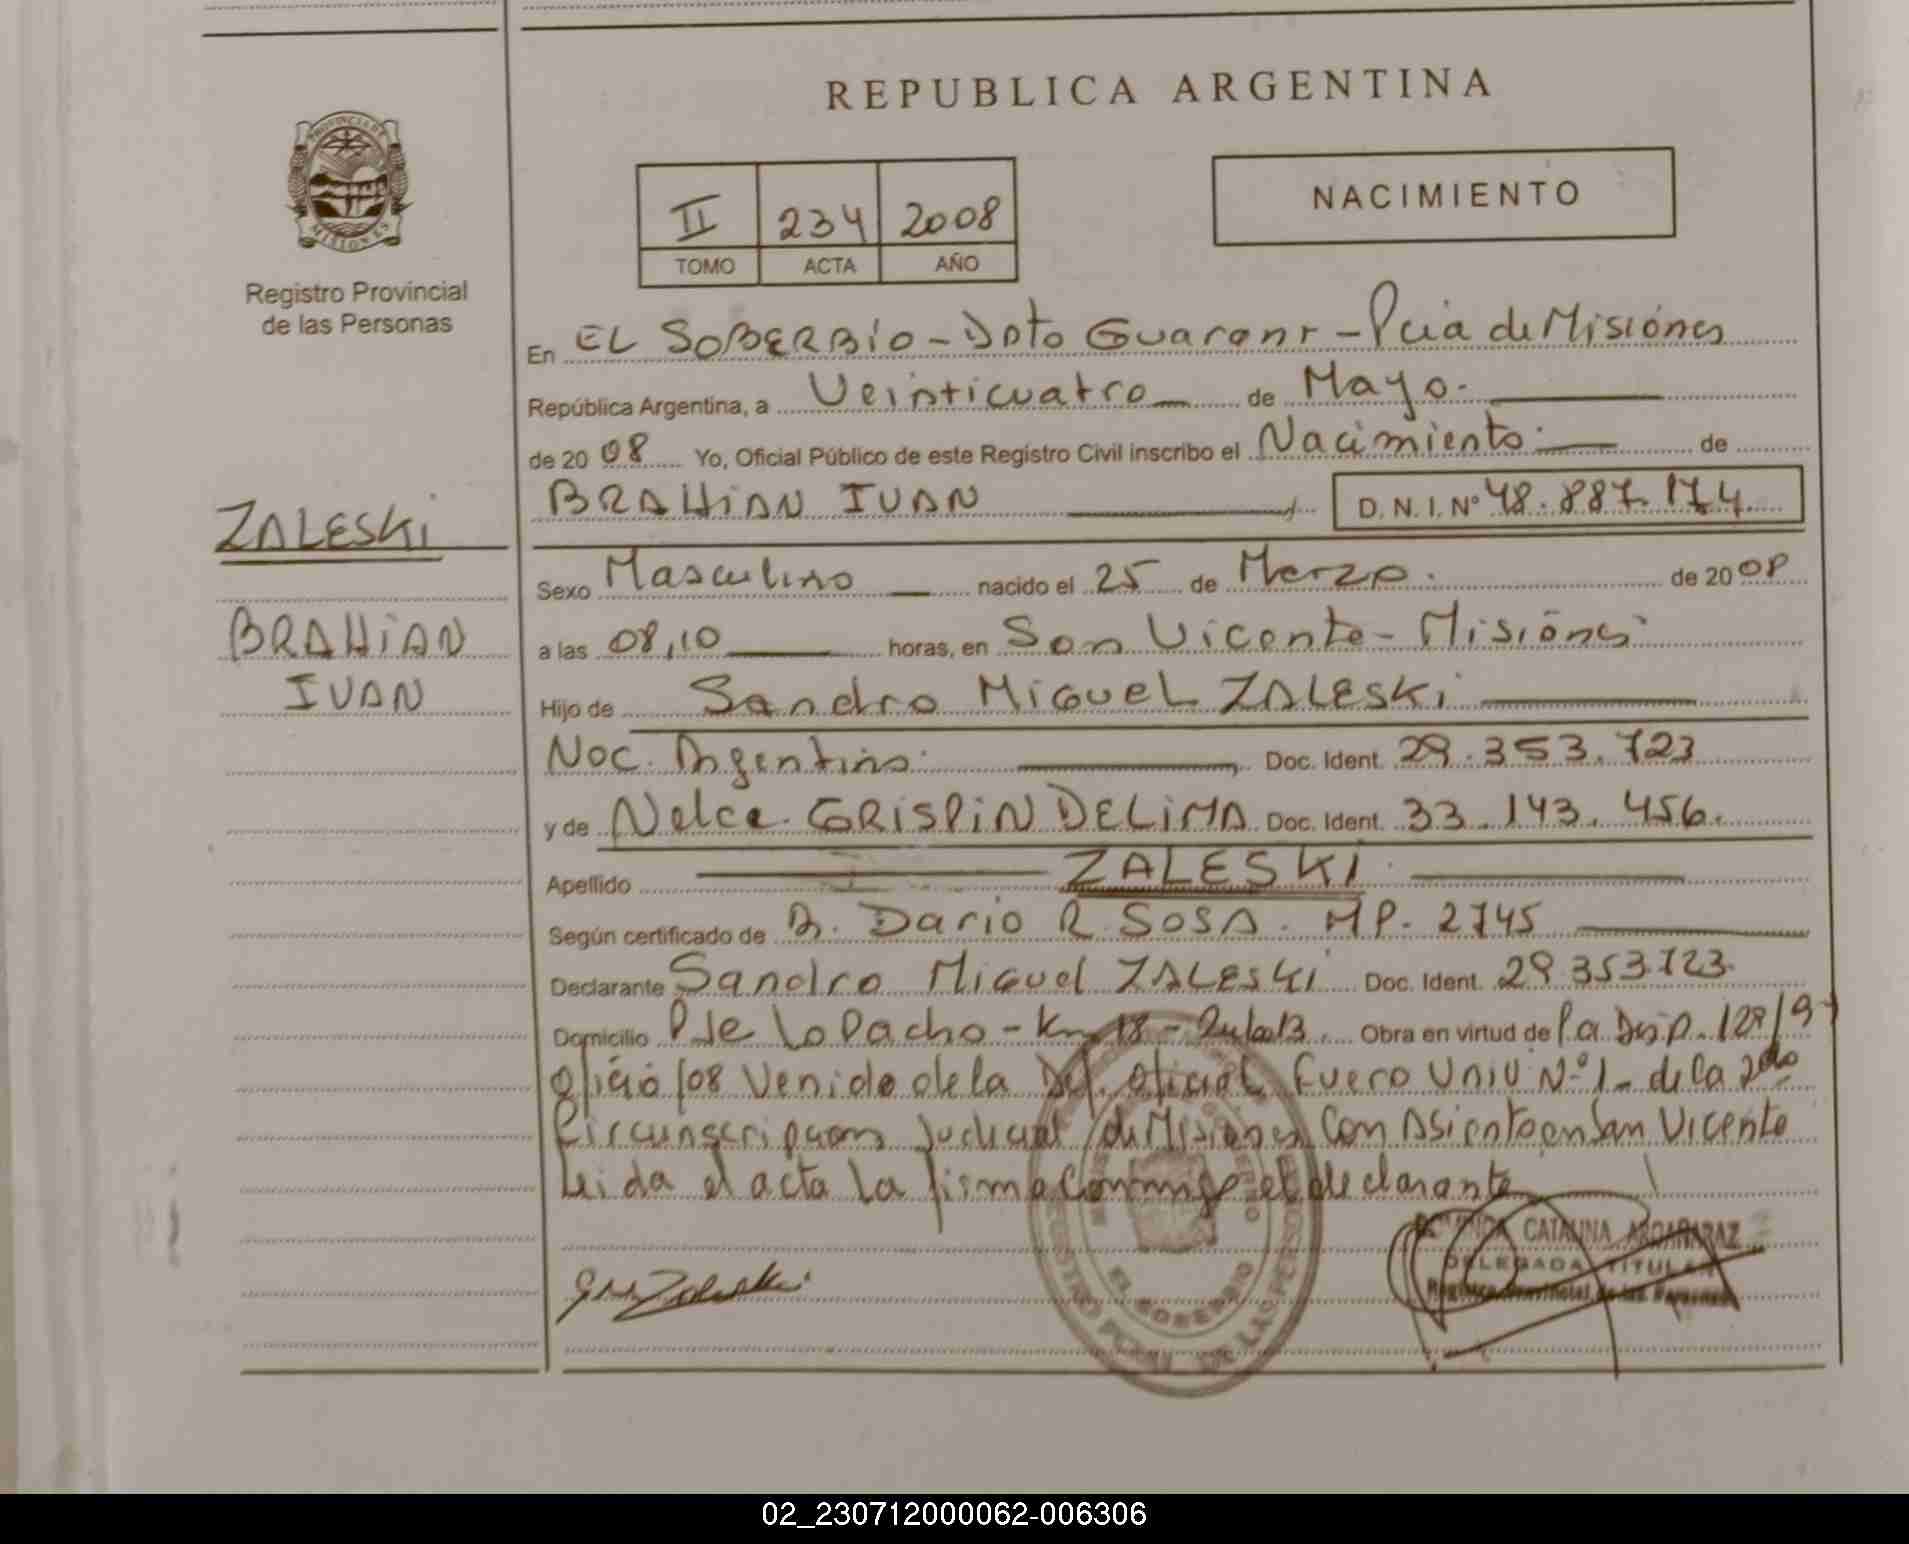 REPUBLICA ARGENTINA
PROVINCIA DE
MISIONES
Registro Provincial
de las Personas
II 234 2008
TOMO ACTA AÑO
NACIMIENTO
En EL SOBERBio - Dpto Guarani - Pcia de Misiones
República Argentina, a Veinticuatro de Mayo.
de 2008 Yo, Oficial Público de este Registro Civil inscribo el Nacimiento de
BRAHiAN IVAN D.N.I. Nº 48.887.174
ZALESKi
BRAHiAN
IVAN
Sexo Masculino nacido el 25 de Marzo. de 2008
a las 08,10 horas, en San Vicente - Misiones
Hijo de Sandro MiGueL ZALESKi
Nac. Argentino. Doc. Ident. 29.353.723
y de Nelce. GRiSPiN DELiMA Doc. Ident. 33.143.456.
Apellido ZALESKi
Según certificado de Dr. Dario R. SOSA. MP. 2745
Declarante Sandro Miguel ZALESKi Doc. Ident. 29.353.723
Domicilio Pje Lo Pacho - Km 18 - Obra en virtud de
Oficio /08 Venido de la Def. Oficial Fuero Univ. Nº 1 - de la 2da
Circunscripcion Judicial de Misiones Con Asiento en San Vicente
Leida el acta la firma Conmigo el declarante
Zaleski
CATALINA ARGAÑARAZ
DELEGADA TITULAR
Registro Provincial de las Personas
EL SOBERBIO
02_230712000062-006306